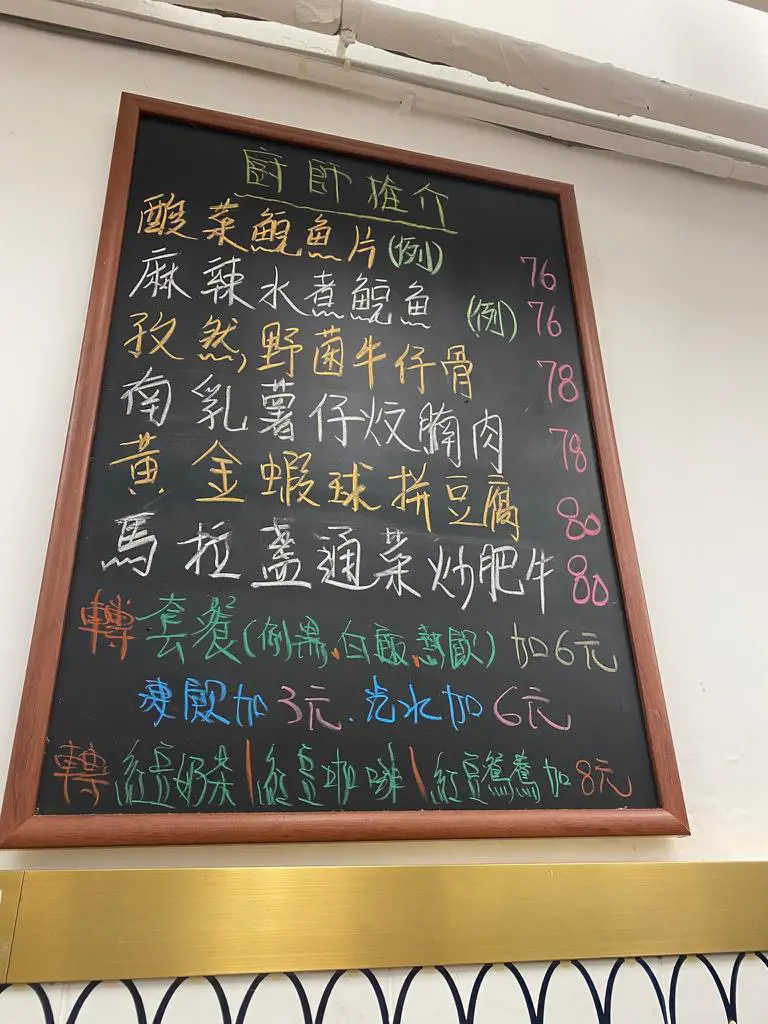 廚師推介
酸菜鯇魚片(例) 76
麻辣水煮鯇魚 (例) 76
孜然野菌牛仔骨 78
南乳薯仔炆腩肉 78
黃金蝦球拼豆腐 80
馬拉盞通菜炒肥牛 80
轉套餐(例湯.白飯.熱飲) 加6元
凍飲加3元.汽水加6元
轉紅豆奶茶|紅豆咖啡|紅豆鴛鴦加8元